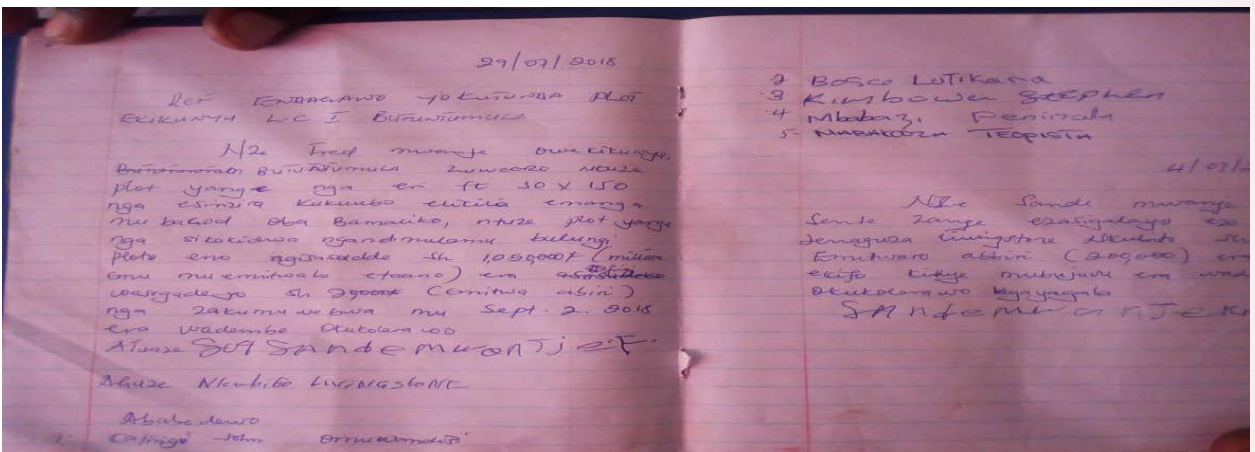 29/07/2018
Ref ENDAGAANO YOKUTUNDA PLOT
EKIKUNYU L.C I BUTUNTUMULA
Nze Fred mwanje owe kikunyu
BUTUNTUMULA Luweero Ntuze
plot yange nga eri ft 50 X 150
nga esinzira kukuubo
mu oba Bamaliko, ntuze plot yange
nga sikakidwa ngandimulamu bulungi
Ploti eno agisasudde sh (million
emu mu emitwalo etaano) era
wasigadeyo sh (emitwa abiri)
nga zakumuwebwa mu Sept. 2. 2018
era wadembe Okukolerawo
Atunze SANdE MWANJE.F.
Aguze Nkubito LIVINGSTONE
Ababadewo
1. John Omuwandisi
2 BOSCO LUTIKANA
3 KIMBOWA STEPHEN
4 Mbabazi Peninah
5- NABAKOOZA TEOPISTA
4/09/2
NZe Sande mwanje
Sente zange ezasigalayo
Jenaguza Livingstone Nkubito sh
Emitwaro abiri (200,000) era
ekifo kikye mubujuvu era wad
Okukolerawo kyayagala
SANdEMWANJE